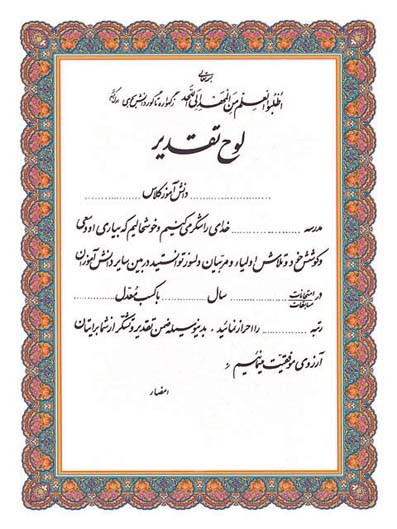 بسمه تعالی
اُطْلُبُوا الْعِلْمَ مِنَ الْمَهْدِ اِلَی اللَّحْدِ ز گهواره تا گور دانش بجوی
لوح تقدیر
.................... دانش آموز کلاس ....................
مدرسه .............. خدای را شکر می کنیم و خوشحالیم که بیاری او و سعی
و کوشش خود و تلاش اولیاء و مربیان دلسوز توانستید در بین سایر دانش آموزان
در امتحانات مسابقات .............. سال .............. با کسب معدل ..............
رتبه .............. را احراز نمائید . بدینوسیله ضمن تقدیر و تشکر از شما برایتان
آرزوی موفقیت مینمائیم
امضاء